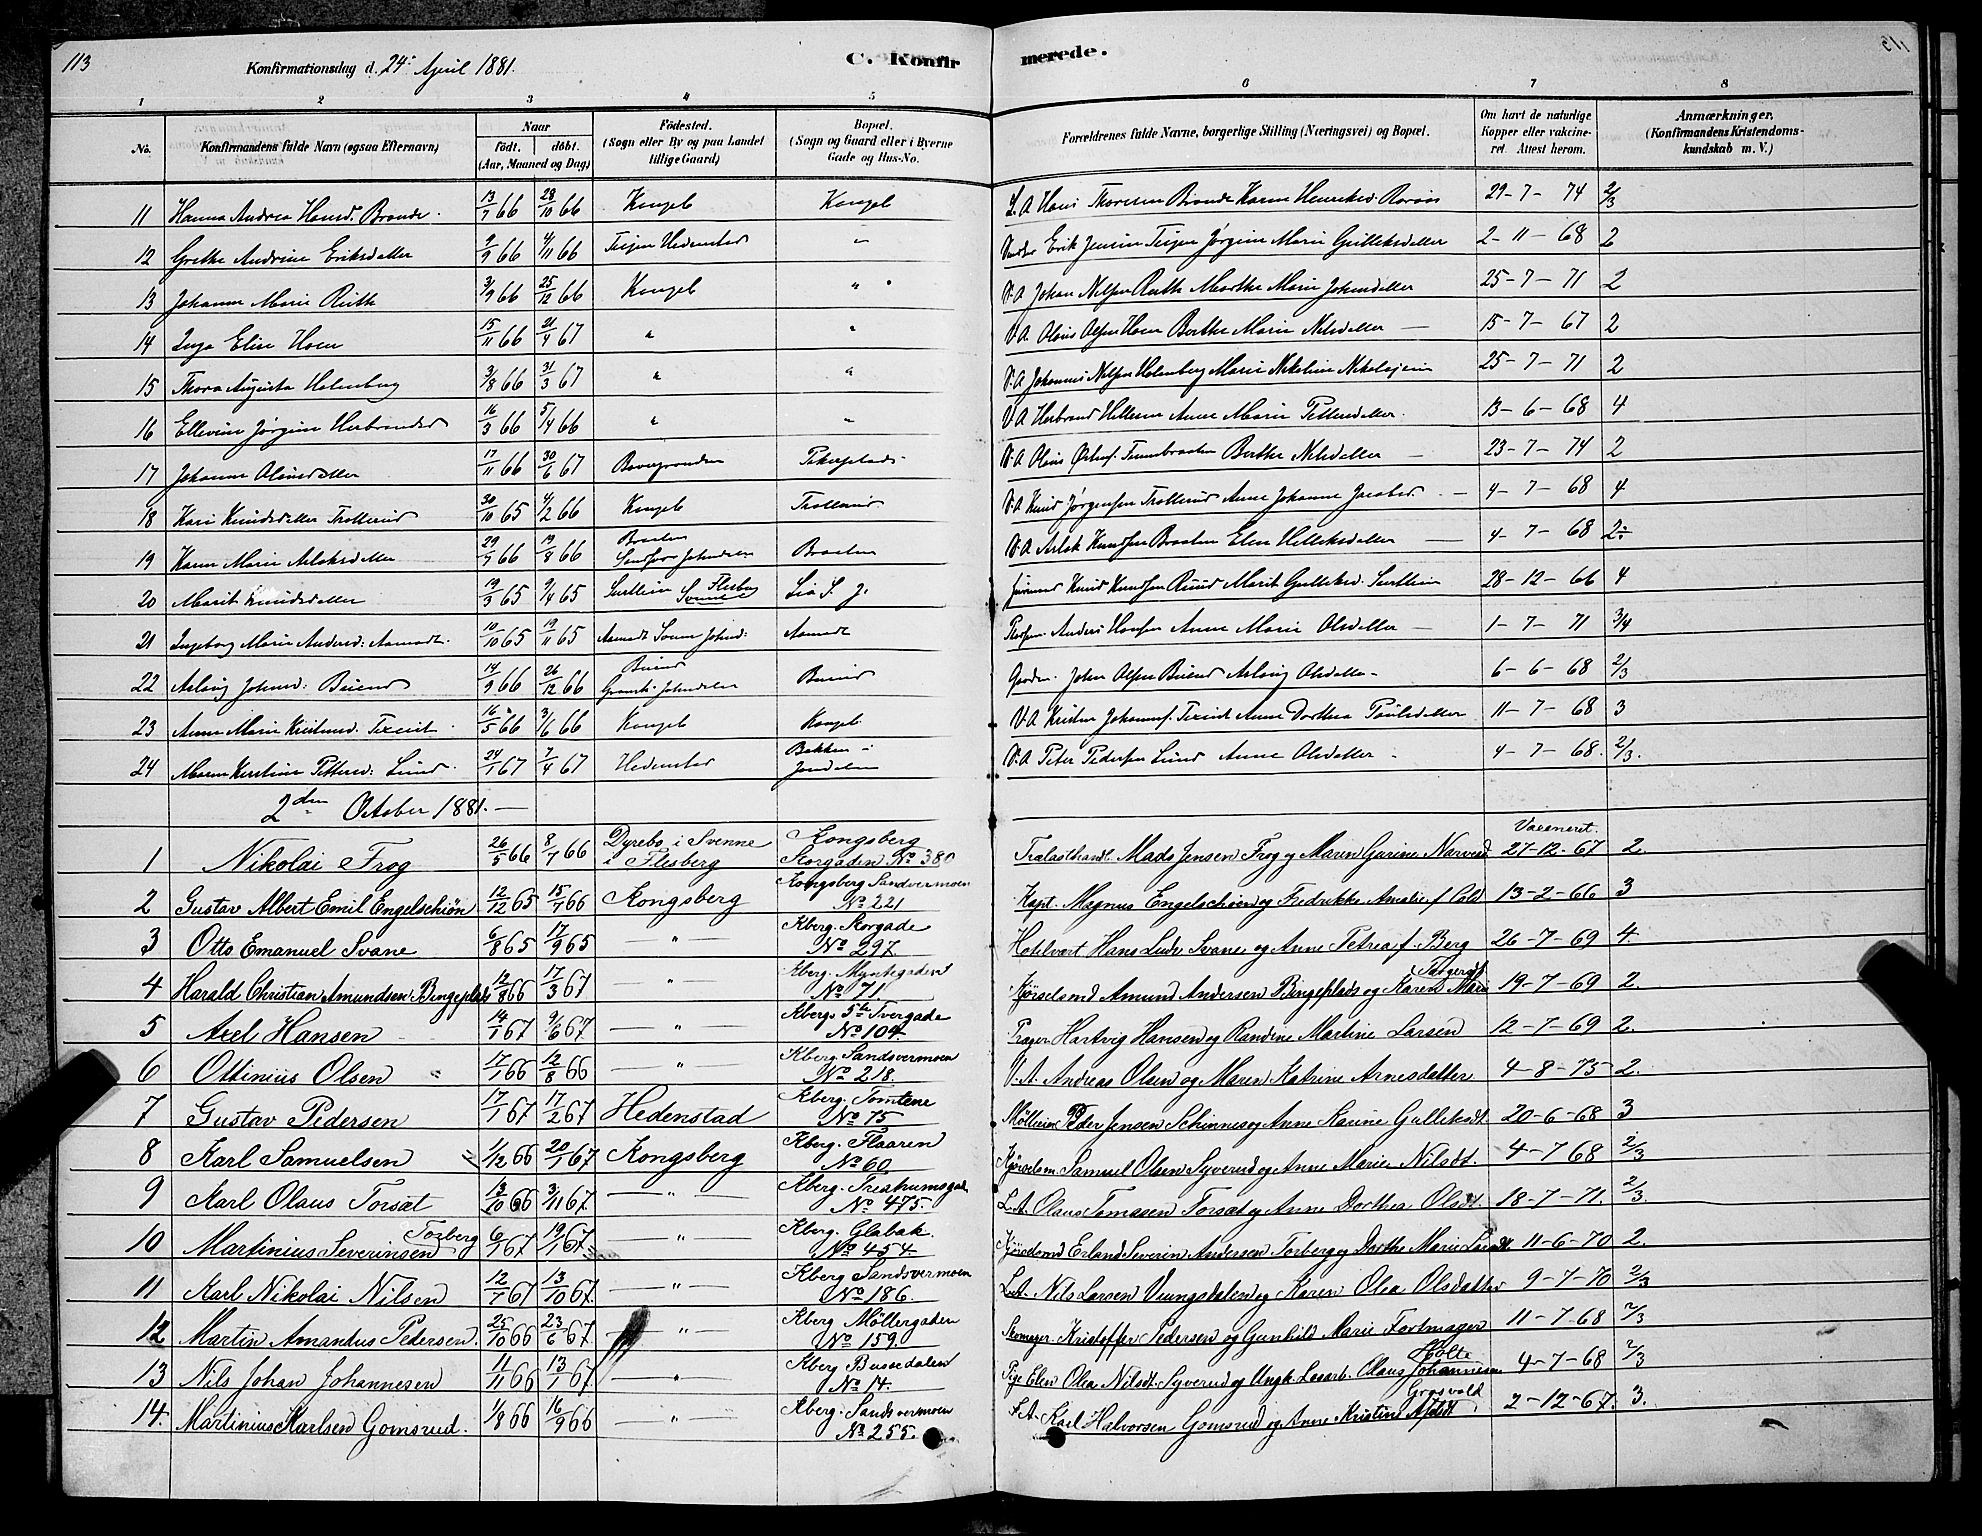 113
Konfirmationsdag d. 24. April 1881.
C. Konfirmerede.
1 2 3 4 5 6 7 8
No. Konfirmandens fulde Navn (ogsaa Efternavn) Naar født. døbt. (Aar, Maaned og Dag) Fødested. (Sogn eller By og paa Landet tillige Gaard) Bopæl. (Sogn og Gaard eller i Byerne Gade og Hus-No. Forældrenes fulde Navne, borgerlige Stilling (Næringsvei) og Bopæl. Om havt de naturlige Kopper eller vakcineret. Attest herom. Anmærkninger, (Konfirmandens Kristendomskundskab m. V.)
11 Hanna Andrea Hansd. Brande. 13/7 66 28/10 66 Kongsb Kongsb L.A Hans Thoresen Brande Karen Henriksd. Raraas 29-7-74 2/3
12 Grethe Andrine Eriksdatter 9/9 66 4/11 66 Teijen Hedenstad " Erik Jensen Teijen Jørgine Marie Gulleksdatter 2-11-68 2
13 Johanne Marie Ruth 3/9 66 25/12 66 Kongsb " V.A Johan Nilsen Ruth Marthe Marie Johnsdatter 25-7-71 2
14 Inga Elise Hoen 15/11 66 21/4 67 " " V.A Olaus Olsen Hoen Berthe Marie Nilsdatter 15-7-67 2
15 Thora Augusta Holmberg 3/8 66 31/3 67 " " V.A Johannes Nilsen Holmberg Marie Nikoline Nikolajsen 25-7-71 2
16 Ellevine Jørgine Herbrandsd 16/3 66 5/4 66 " " V.A Herbrand Hellesen Anne Marie Pettersdatter. 13-6-68 4
17 Johanne Olausdatter 17/11 66 30/6 67 V.A Olaus Berthe Nilsdatter 23-7-74 2
18 Kari Knudsdatter Trollerud 30/10 65 4/2 66 Kongsb Trollerud V.A Knud Jørgensen Trollerud Anne Johanne Jacobsd. 4-7-68 4
19 Karen Marie Aslaksdatter 29/7 66 19/8 66 Braaten Braaten V.A Aslak Knudsen Braaten Elen Helleksdatter 4-7-68 2÷
20 Marit Knudsdatter 19/3 65 9/4 65 Flesberg Svenne Lia S. J. Knud Knudsen Ruud Marit Gulleksd. 28-12-66 4
21 Ingeborg Marie Andersd: Aamodt. 10/10 65 19/11 65 Aamodt Aamodt Anders Hansen Anne Marie Olsdatter 1-7-71 3/4
22 Aslaug Johnsd: Buind 14/9 66 26/12 66 Buind Buind Gaardm. John Olsen Buind Aslaug Olsdatter 6-6-68 2/3
23 Anne Marie Kristensd. 16/5 66 3/6 66 Kongsb Kongsb V.A Kristen Johannes. Anne Dorthea Poulsdatter 11-7-68 3
24 Maren Kirstine Pettersd: Lund. 24/1 67 7/4 67 Hedenstad Bakken Jondalen V.A Peter Pedersen Lund Anne Olsdatter 4-7-68. 2/3.
2den October 1881.
1 Nikolai Frog 26/5 66 8/7 66 Dyrebo i Svenne i Flesberg Kongsberg Storgaden No 380 Trælasthandl. Mads Jensen Frog og Maren Gurine Narvesd Vaccineret. 27-12-67 2.
2 Gustav Albert Emil Engelschiøn 12/12 65 15/7 66 Kongsberg Kongsberg Sandsvermoen No 221 Kapt. Magnus Engelschiøn og Fredrikke Amalie f. Cold 13-2-66 3
3 Otto Emanuel Svane 6/8 65 17/9 65 " Kberg. Storgade No 297. Hotelvert Hans Ludv Svane og Anne Petrea f. Berg 26-7-69 4.
4 Harald Christian Amundsen Bingeplads 12/8 66 17/3 67 " Kberg. Myntegaden No 71. Kjørselsmd Amund Andersen Bingeplads og Karen Marie 19-7-69 2.
5 Axel Hansen 14/1 67 9/6 67 " Kberg. 5te Tvergade No 104. Prager Hartvig Hansen og Randine Martine Larsen 12-7-69 2.
6 Ottinius Olsen 17/1 66 12/8 66 " Kberg. Sandsvermoen No 218. V.A. Andreas Olsen og Maren Katrine Arnesdatter 4-8-75 2.
7 Gustav Pedersen 17/1 67 17/2 67 Hedenstad Kberg. Tomtene No 15 Peder Jensen Schinnes og Anne Karine Gulleksdt. 20-6-68 3
8 Karl Samuelsen 1/12 66 20/1 67 Kongsberg Kberg. Flaaren No 60. Kjørselsm. Samuel Olsen Syverud og Anne Marie Nilsdt. 4-7 68 2/3
9 Karl Olaus Torsæt 13/10 66 3/11 67. " Kberg. No 475. L.A. Olaus Tomasen Torsæt og Anne Dorthea Olsdt. 18-7-71. 2/3.
10 Martinius Severinsen Torberg 6/1 67 19/1 67. " Kberg. Glabak. No 454. Kjørselsmd Erland Severin Andersen Torberg og Dorthe Marie 11-6-70 2.
11 Karl Nikolai Nilsen 12/1 67 13/10 67. " Kberg Sandsvermoen No 186. L.A. Nils Larsen Veungsdalen og Karen Olea Olsdatter 9-7-70 2/3
12 Martin Amandus Pedersen. 25/10 66 23/6 67. " Kberg Møllergaden No 159. Skomager. Kristoffer Pedersen og Gunhild Marie Formager 11-7-68 2/3
13 Nils Johan Johannesen 11/11 66 13/1 67. " Kberg Bussedalen No 14. Pige Elen Olea Nilsdt. Syverud og Ungk. Løsarb. Olaus Johannesen Holte 4-7-68 2/3
14. Martinius Karlsen Gomsrud. 1/8 66 16/9 66 " Kberg. Sandsvermoen No 255. F.A. Karl Halvorsen Gomsrud og Anne Kristine Grosvold 2-12-67. 3.